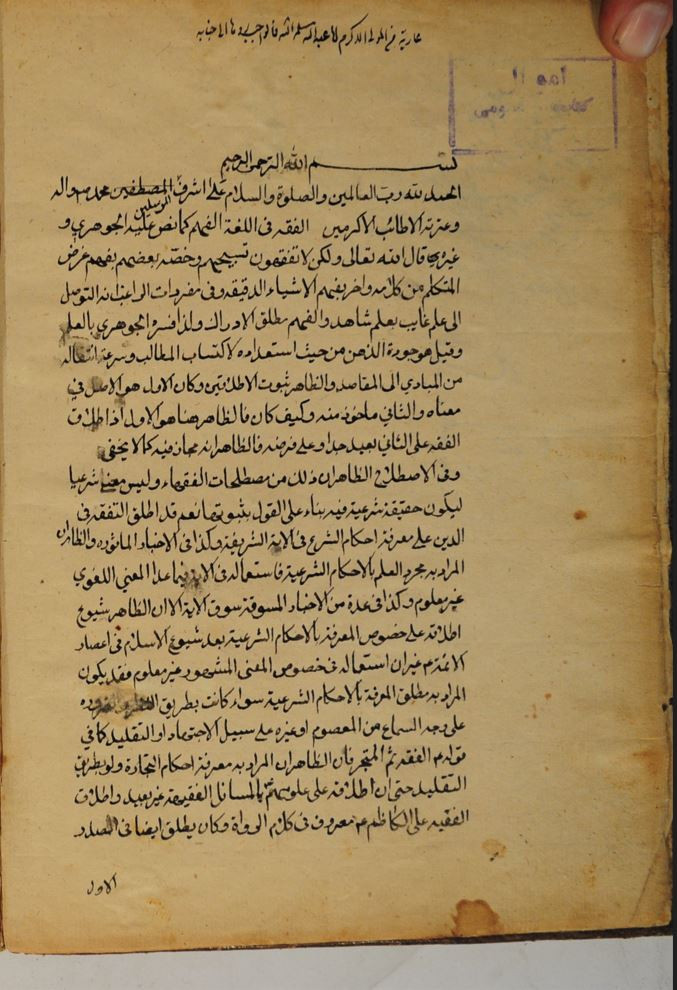 عارية من المولى الاكرم
اموال
بسم الله الرحمن الرحيم
الحمد لله رب العالمين والصلوة والسلام على اشرف المصطفين محمد واله
المرسلين
وعترته الاطائب الاكرمين الفقه فى اللغة الفهم كما نص عليه الجوهري و
غيره قال الله تعالى ولكن لا تفقهون تسبيحهم وخصّه بعضهم بفهم غرض
المتكلم من كلامه واخر بفهم الاشياء الدقيقه وفى مفردات الراغب انه التوصل
الى علم غايب بعلم شاهد والفهم مطلق الادراك ولذا فسره الجوهري بالعلم
وقيل هو جودة الذهن من حيث استعداده لاكتساب المطالب وسرعة انتقاله
من المبادي الى المقاصد والظاهر ثبوت الاطلاقين وكان الاول هو الاصل في
معناه والثاني ماخوذ منه وكيف كان فالظاهر هنا هو الاول اذ اطلاق
الفقه على الثاني بعيد جدا وعلى فرضه فالظاهر انه مجاز فيه كما لا يخفى
وفى الاصطلاح الظاهر ان ذلك من مصطلحات الفقهاء وليس معنى شرعيا
ليكون حقيقة شرعية فيه بناء على القول بثبوتها نعم قد اطلق التفقه فى
الدين على معرفة احكام الشرع فى الاية الشريفة وكذا فى الاخبار الماثوره والظاهر ان
المراد به مجرد العلم بالاحكام الشرعية فاستعماله فى الاية فيما عدا المعني اللغوي
غير معلوم وكذا فى عدة من الاخبار المسوقة سوق الاية الا ان الظاهر شيوع
اطلاقه على خصوص المعرفة بالاحكام الشرعية بعد شيوع الاسلام فى اعصار
الائمة ع غير ان استعماله فى خصوص المعنى المشهور غير معلوم فقد يكون
المراد به مطلق المعرفة بالاحكام الشرعية سواء كانت بطريق
على وجه السماع من المعصوم او غيره على سبيل الاجتهاد او التقليد كما في
قوله ع الفقه ثم المتجر فان الظاهر ان المراد به معرفة احكام التجارة ولو بطريق
التقليد حتى ان اطلاقه على علومهم ع بالمسائل الفقهية غير بعيد واطلاق
الفقيه على الكاظم ع معروف فى كلام الرواة وكان يطلق ايضا فى الصدر
الاول